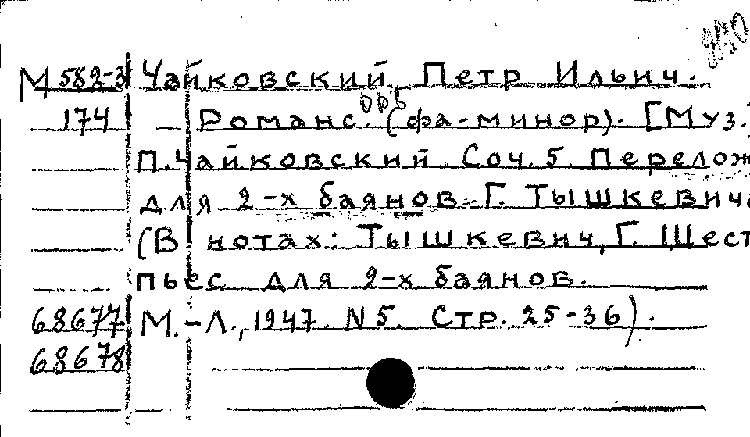 М 582-3 Чайковский, Петр Ильич.
174 Романс. (фа-минор). [Муз.]
П. Чайковский Соч. 5. Перелож
для 2-х баянов Г. Тышкевича
(В нотах: Тышкевич, Г. Шест
пьес для 2-х баянов.
68677 М.-Л., 1947. N 5. Стр. 25-36).
68678